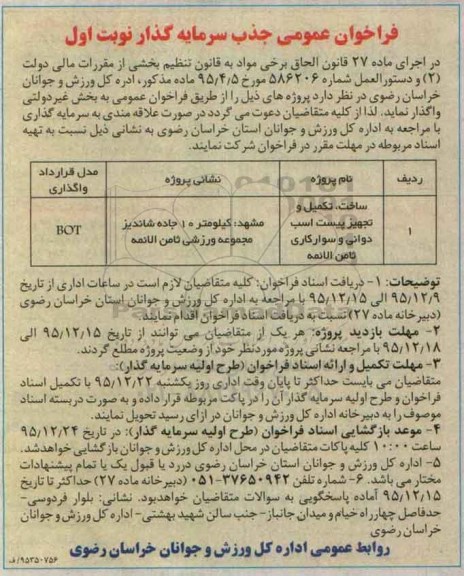 فراخوان عمومی جذب سرمایه گذار نوبت اول
در اجرای ماده ۲۷ قانون الحاق برخی مواد به قانون تنظیم بخشی از مقررات مالی دولت
(۲) و دستورالعمل شماره ۵۸۶۲۰۶ مورخ ۹۵/۴/۵ ماده مذکور، ادره کل ورزش و جوانان
خراسان رضوی در نظر دارد پروژه های ذیل را از طریق فراخوان عمومی به بخش غیردولتی
واگذار نماید. لذا از کلیه متقاضیان دعوت می گردد در صورت علاقه مندی به سرمایه گذاری
با مراجعه به اداره کل ورزش و جوانان استان خراسان رضوی به نشانی ذیل نسبت به تهیه
اسناد مربوطه در مهلت مقرر در فراخوان شرکت نمایند.
ردیف نام پروژه نشانی پروژه مدل قرارداد واگذاری
۱ ساخت، تکمیل و تجهیز پیست اسب دوانی و سوارکاری ثامن الائمه مشهد: کیلومتر ۱۰ جاده شاندیز مجموعه ورزشی ثامن الائمه BOT
توضیحات: ۱- دریافت اسناد فراخوان: کلیه متقاضیان لازم است در ساعات اداری از تاریخ
۹۵/۱۲/۹ الی ۹۵/۱۲/۱۵ با مراجعه به اداره کل ورزش و جوانان استان خراسان رضوی
(دبیرخانه ماده ۲۷) نسبت به دریافت اسناد فراخوان اقدام نمایند.
۲- مهلت بازدید پروژه: هر یک از متقاضیان می توانند از تاریخ ۹۵/۱۲/۱۵ الی
۹۵/۱۲/۱۸ با مراجعه نشانی پروژه موردنظر خود از وضعیت پروژه مطلع گردند.
۳- مهلت تکمیل و ارائه اسناد فراخوان (طرح اولیه سرمایه گذار):
متقاضیان می بایست حداکثر تا پایان وقت اداری روز یکشنبه ۹۵/۱۲/۲۲ با تکمیل اسناد
فراخوان و طرح اولیه سرمایه گذار آن را در پاکت مربوطه قرار داده و به صورت دربسته اسناد
موصوف را به دبیرخانه اداره کل ورزش و جوانان در ازای رسید تحویل نمایند.
۴- موعد بازگشایی اسناد فراخوان (طرح اولیه سرمایه گذار): در تاریخ ۹۵/۱۲/۲۴
ساعت ۱۰:۰۰ کلیه پاکات متقاضیان در محل اداره کل ورزش و جوانان بازگشایی خواهدشد.
۵- اداره کل ورزش و جوانان استان خراسان رضوی دررد یا قبول یک یا تمام پیشنهادات
مختار می باشد. ۶- شماره تلفن ۳۷۶۵۰۹۴۲-۰۵۱ (دبیرخانه ماده ۲۷) حداکثر تا تاریخ
۹۵/۱۲/۱۵ آماده پاسخگویی به سوالات متقاضیان خواهدبود. نشانی: بلوار فردوسی-
حدفاصل چهارراه خیام و میدان جانباز- جنب سالن شهید بهشتی- اداره کل ورزش و جوانان
خراسان رضوی
روابط عمومی اداره کل ورزش و جوانان خراسان رضوی
۹۵۳۵۰۷۵۶/ف